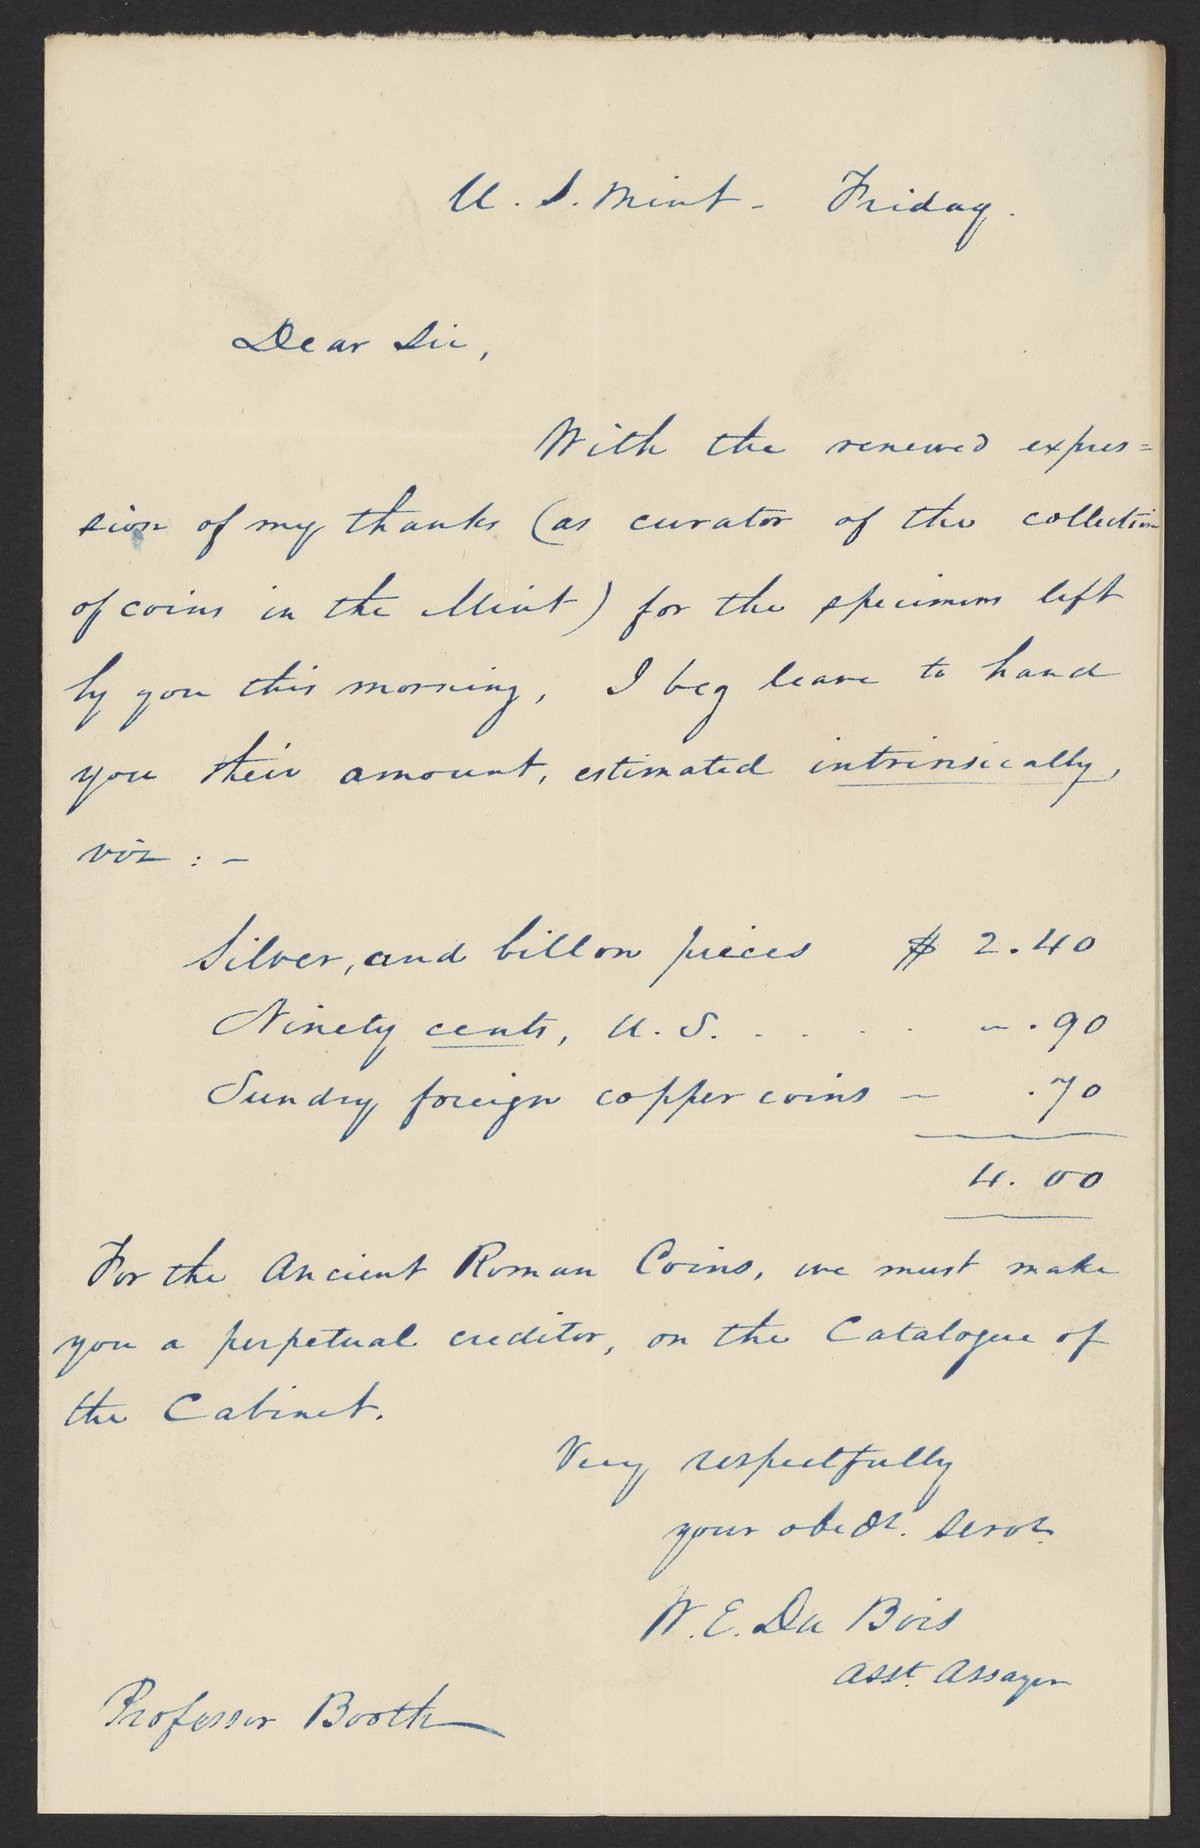 U. S. Mint - Friday.
Dear Sir,
With the renewed expres=
sion of my thanks (as curator of the collection
of coins in the Mint) for the specimens left
by you this morning, I beg leave to hand
you their amount, estimated intrinsically,
viz : -
Silver, and billon pieces $ 2.40
Ninety cents, U. S. . . . . - .90
Sundry foreign copper coins - .70
4. 00
For the Ancient Roman Coins, we must make
you a perpetual creditor, on the Catalogue of
the Cabinet.
Very respectfully
your obedt. servt.
W. E. Du Bois
Asst. Assayer
Professor Booth